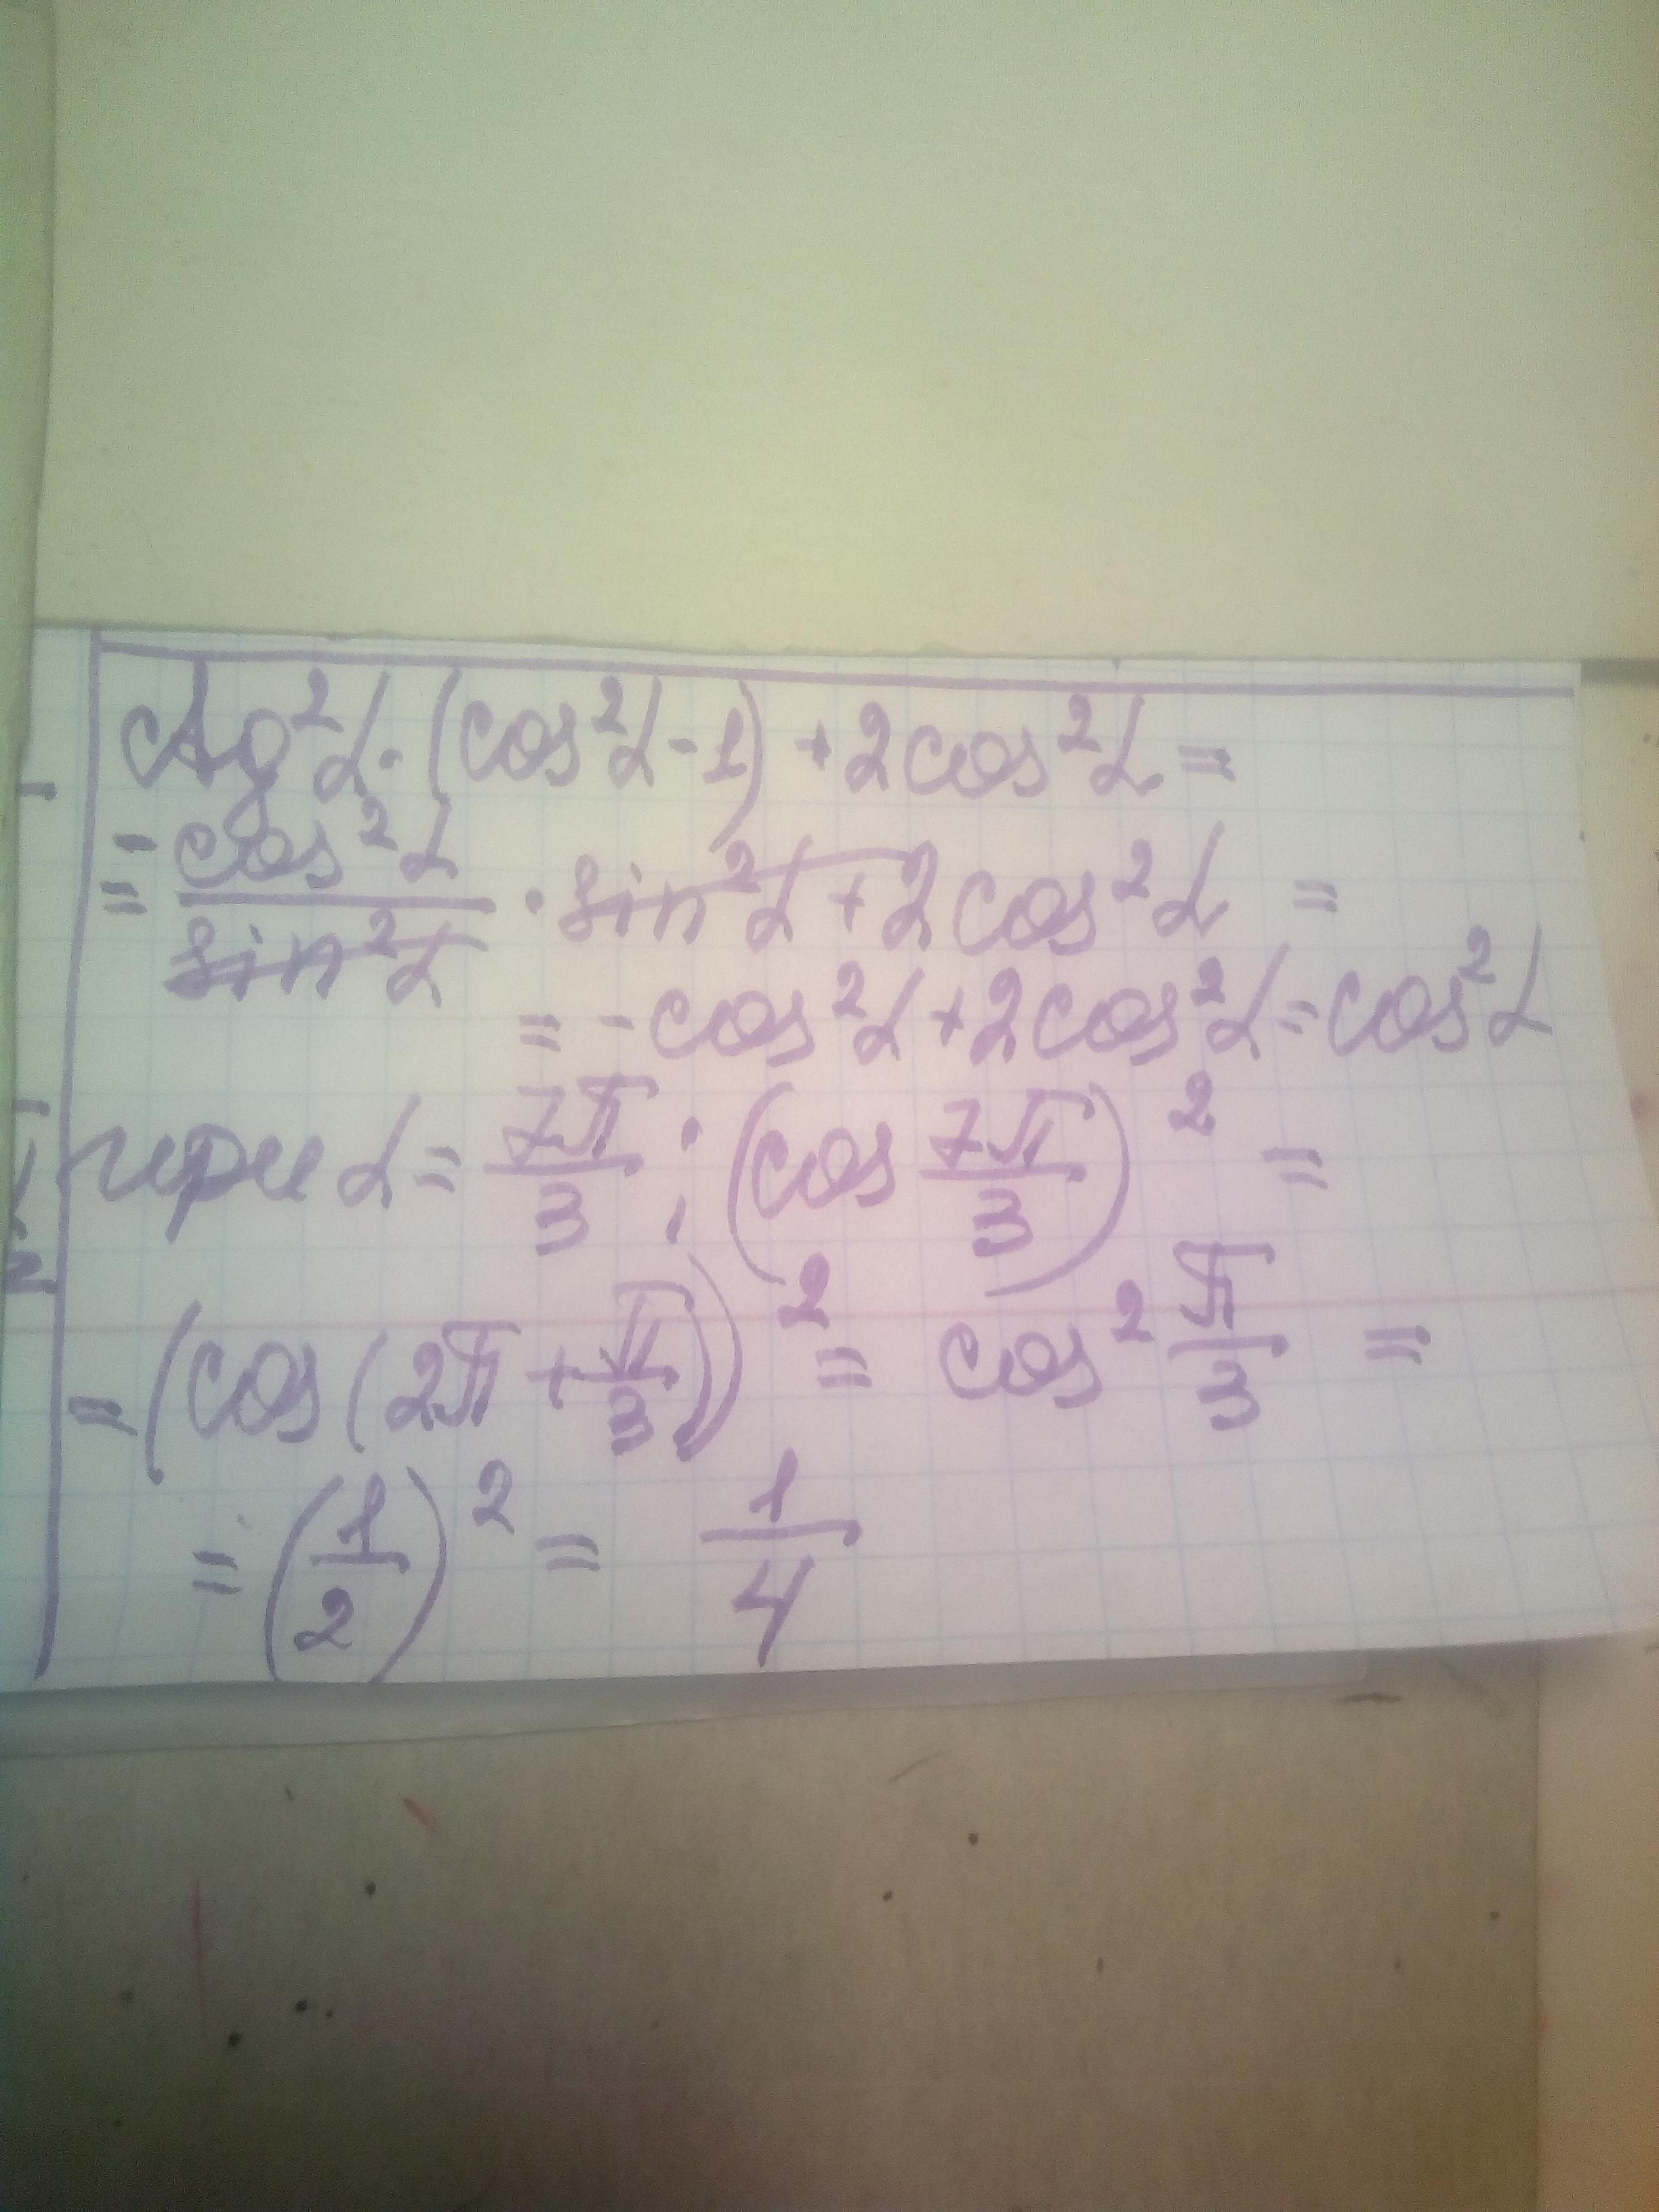 ctg²α·(cos²α-1)+2cos²α=
= -cos²α/sin²α · sin²α+2cos²α =
= -cos²α+2cos²α=cos²α
при α=7π/3; (cos 7π/3)² =
=(cos(2π+π/3))² = cos² π/3 =
= (1/2)² = 1/4